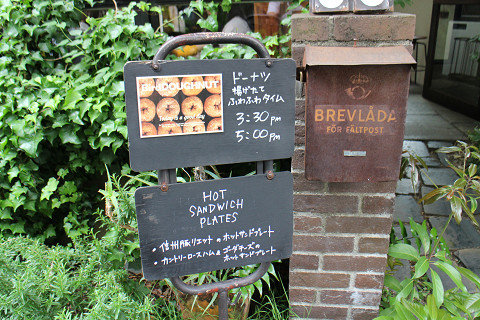 DOUGHNUT
ドーナツ
揚げたて
ふわふわタイム
3:30 pm
5:00 pm
HOT
SANDWICH
PLATES
・信州豚リエットのホットサンドプレート
・カントリーロースハム&ゴーダチーズの
ホットサンドプレート
BREVLÅDA
FÖR FÄLTPOST